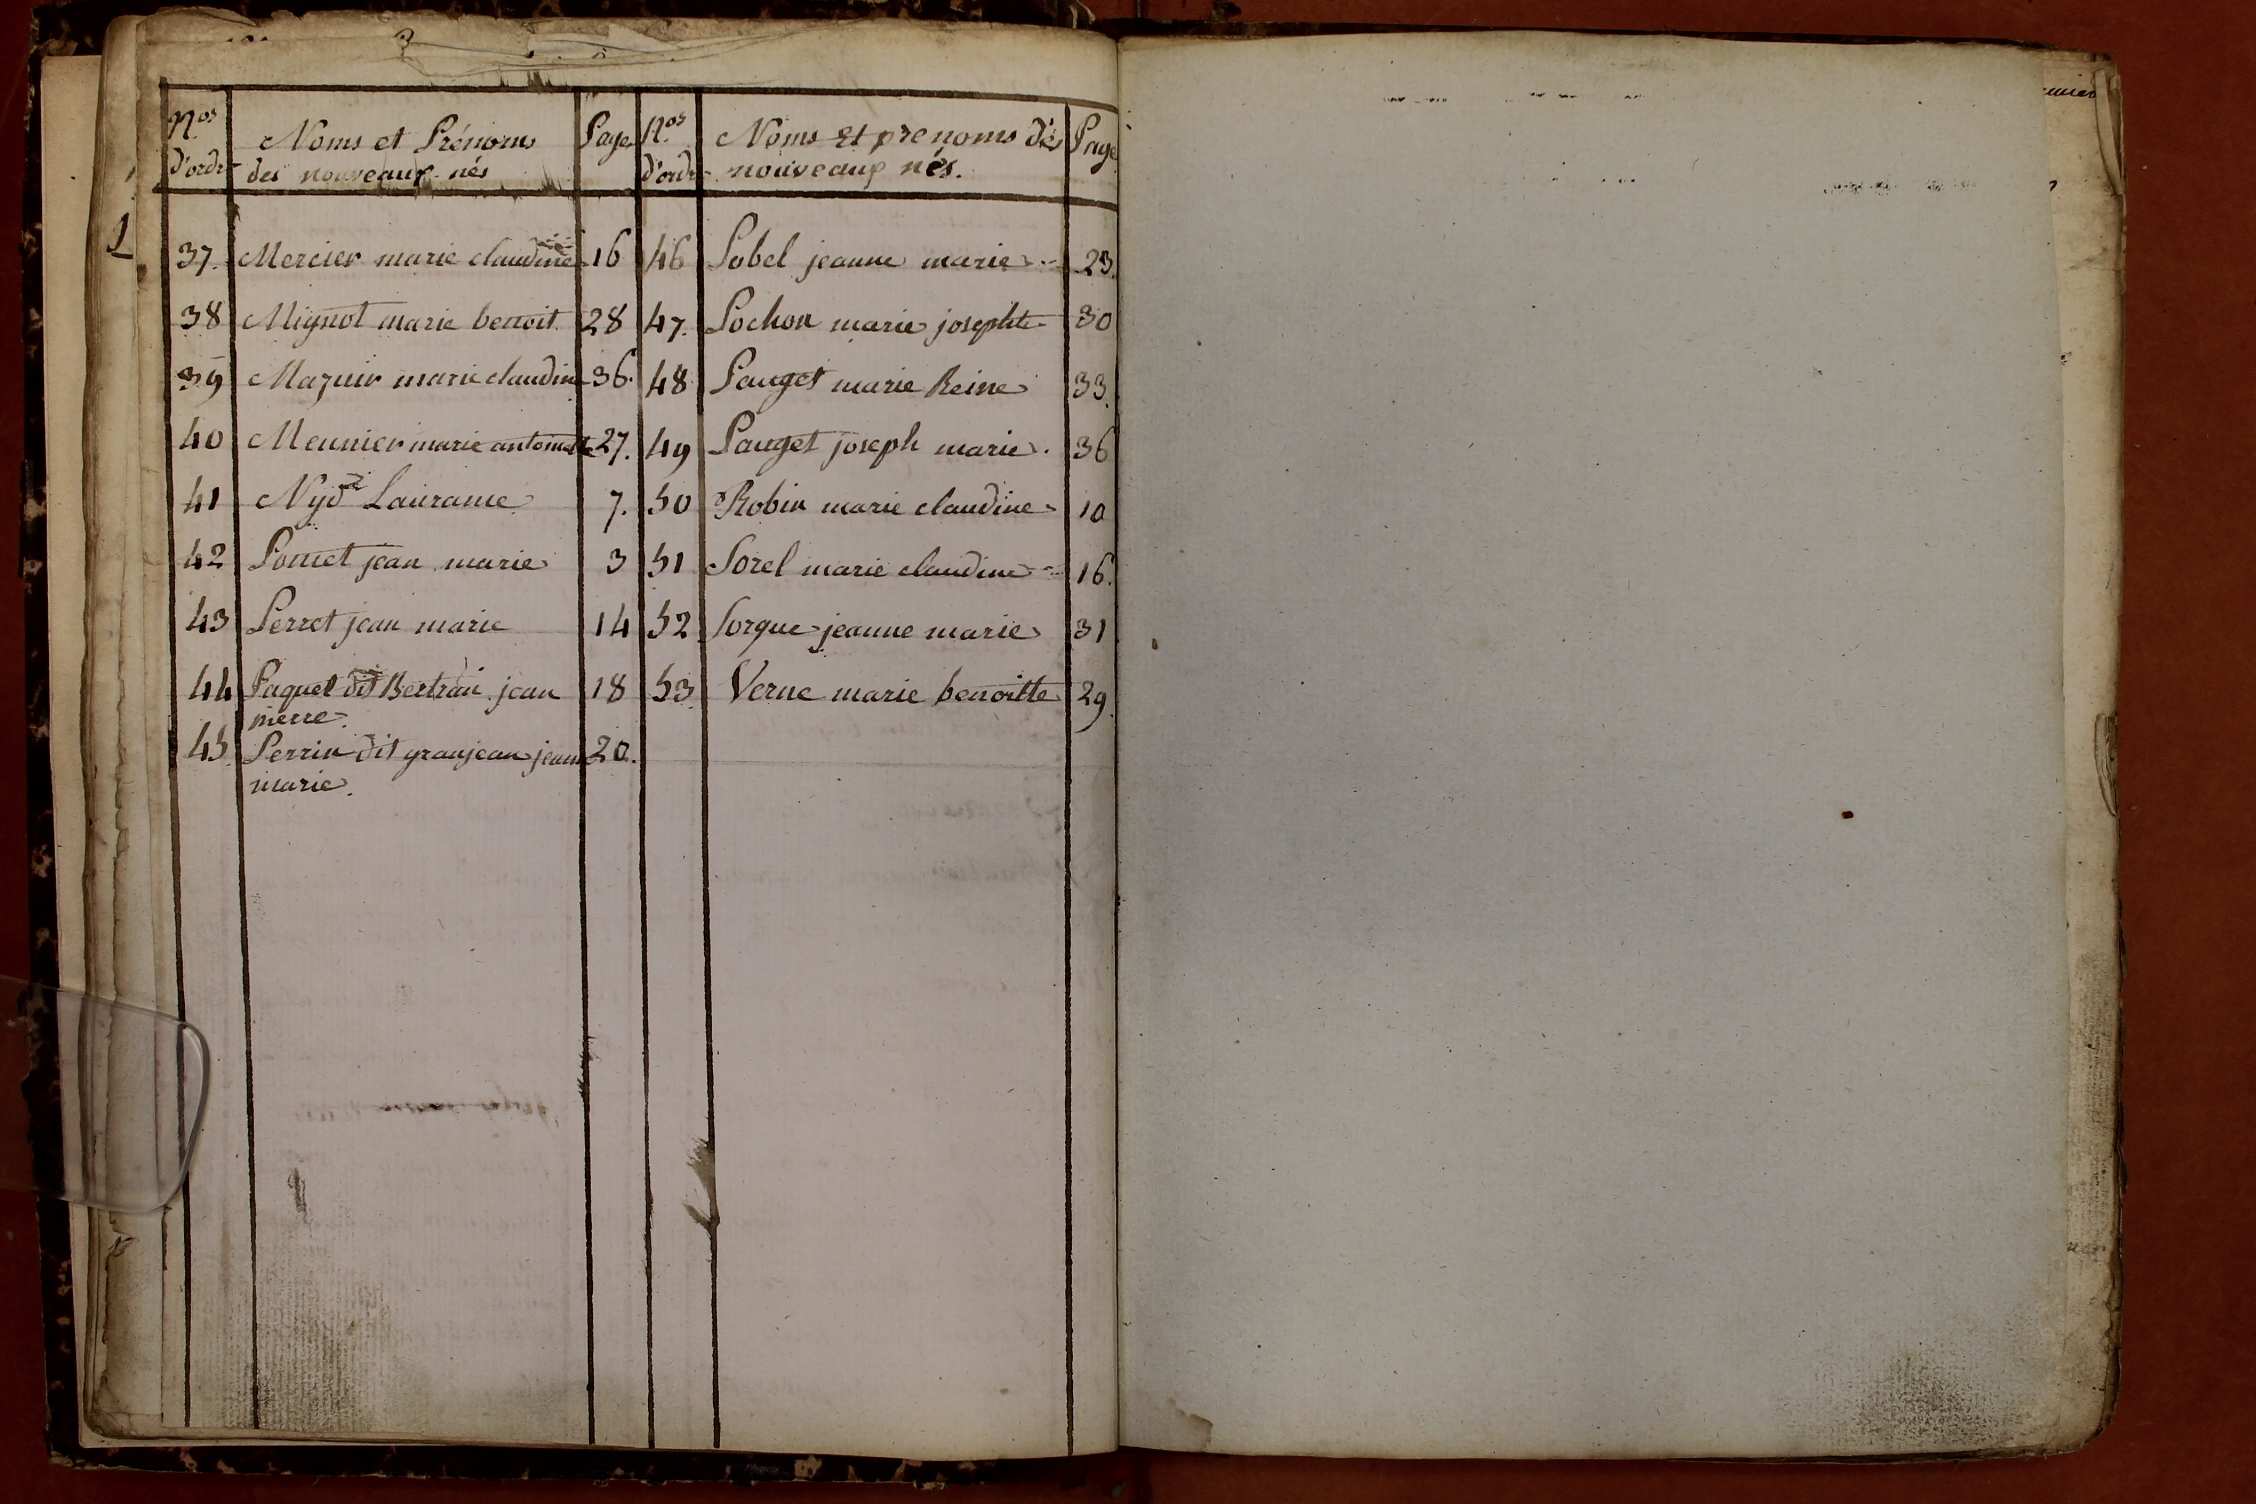 Nos d'ordre
Noms et Prénoms
des nouveaux nés
Page
Nos d'ordre
Noms et prenoms dès
nouveaux nés.
Page
37. Mercier marie claudine 16
38 Mignot marie benoit 28
39 Mazuir marie claudine 36.
40 Meunier marie antoinette 27.
41 Nyd Laurance 7.
42 Pomet jean marie 3
43 Perret jean marie 14
44 Paquet dit Bertran jean 18
pierre.
45 Perrin dit granjean jean 20.
marie.
46 Pobel jeanne marie 23.
47. Pochon marie josephte 30
48 Pauget marie Reine 33.
49 Pauget joseph marie. 36
50 Robin marie claudine 10
51 Sorel marie claudine 16.
52 Sorgue jeanne marie 31
53. Verne marie benoitte 29.